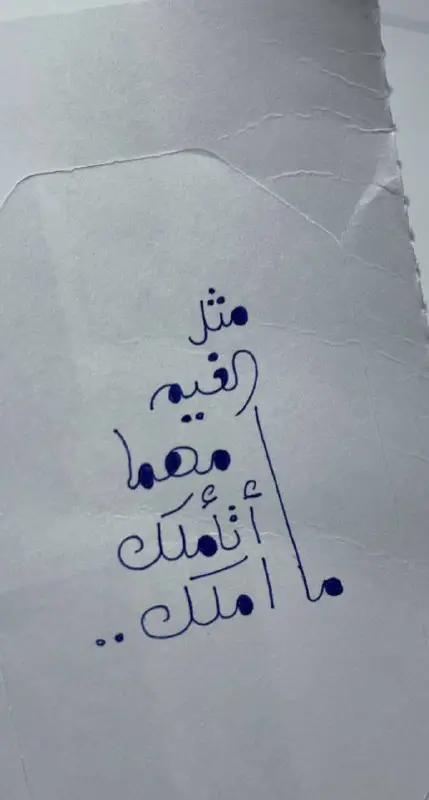 مثل
الغيم
مهما
أتأملك
ما املكك ..